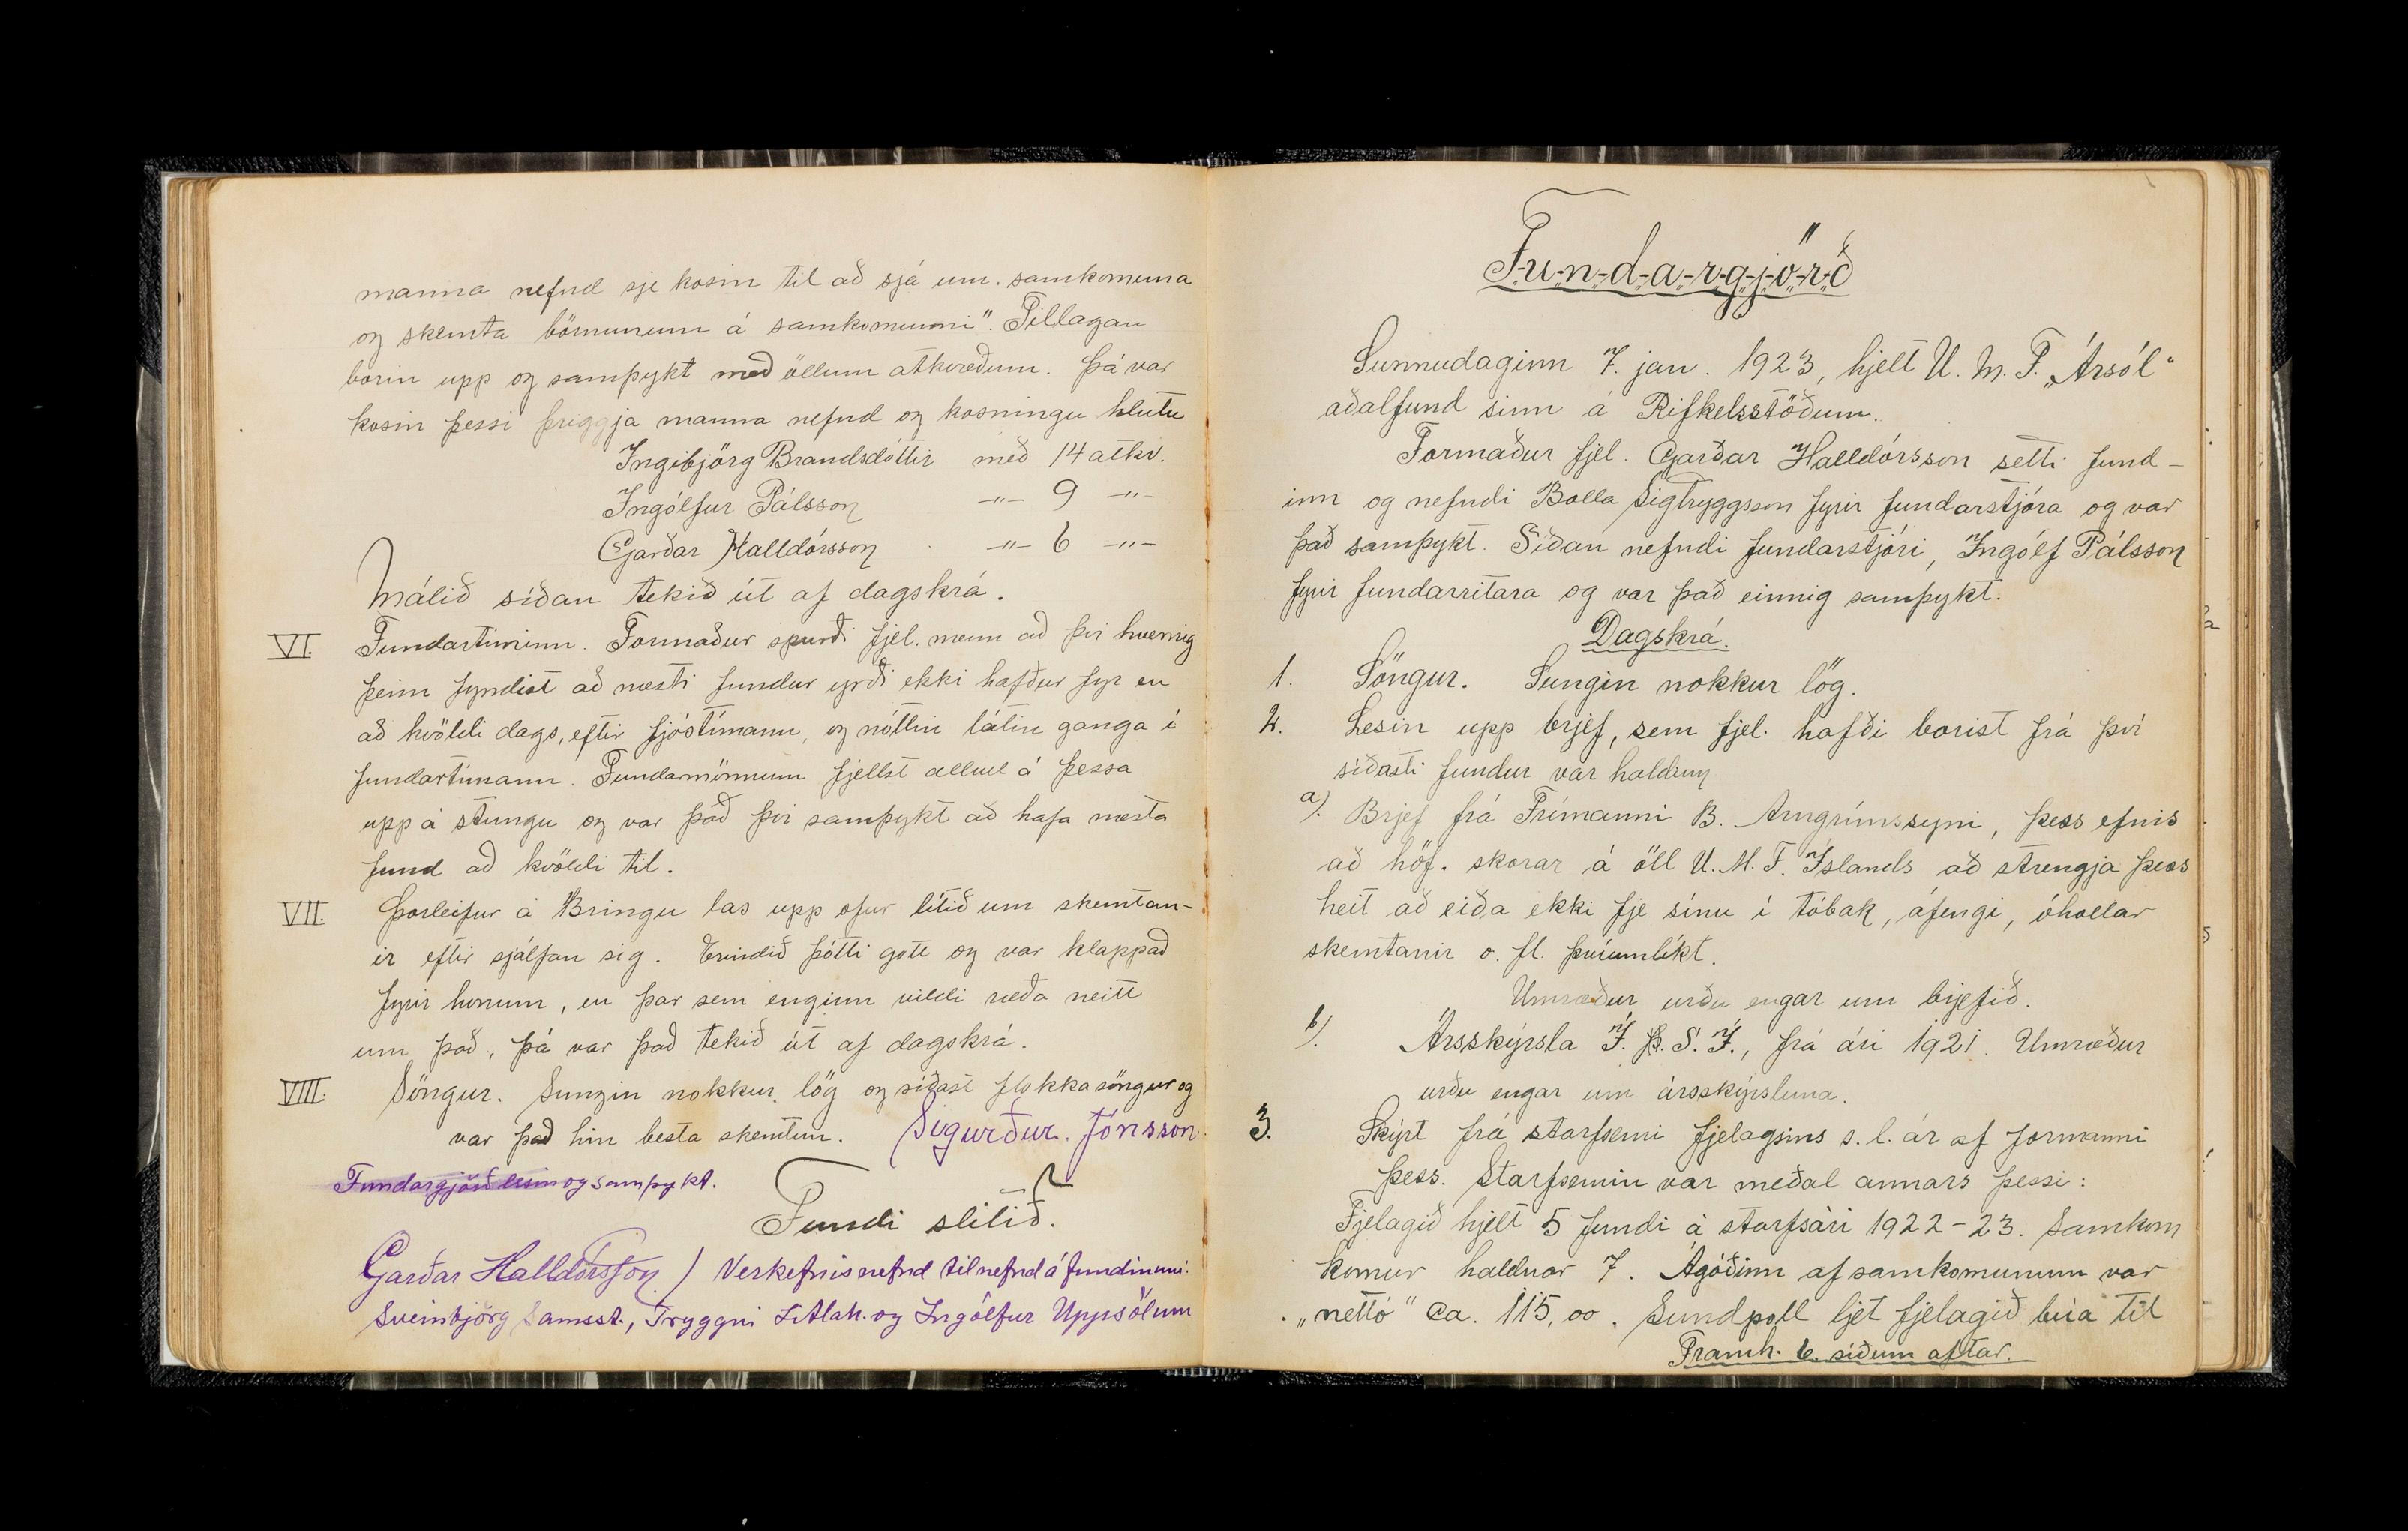 manna nefnd sje kosin til að sjá um. samkomuna
og skemta börnunum á samkomunni". Tillagan
borin upp og samþykt með öllum atkvæðum. Þá var
kosin þessi þriggja manna nefnd og kosningu hlutu
Ingibjörg Brandsdóttir með 14 atkv.
Ingólfur Pálsson -"- 9 -"-
Garðar Halldórsson -"- 6 -"-
Málið síðan tekið út af dagskrá.
VI. Fundartíminn. Formaður spurði fjel. menn að því hvernig
þeim fyndist að næsti fundur yrði ekki hafður fyr en
að kvöldi dags, eftir fjóstímann, og nóttin látin ganga í
fundartímann. Fundarmönnum fjellst allvel á þessa
uppá stungu og var það því samþykt að hafa næsta
fund að kvöldi til.
VII. Þorleifur á Bringu las upp ofur lítið um skemtan-
ir eftir sjálfan sig. Erindið þótti gott og var klappað
fyrir honum, en þar sem enginn vildi ræða neitt
um það, þá var það tekið út af dagskrá.
VIII. Söngur. Sungin nokkur lög og síðast flokkasöngur og
var það hin besta skemtun. Sigurður. Jónsson.
Fundargjörð lesin og samþykt.
Fundi slitið.
Garðar Halldórsson / Verkefnisnefnd tilnefnd á fundinum:
Sveinbjörg Samsst., Tryggvi Ytlah. og Ingólfur Uppsölum
F-u-n-d-a-r-g-j-ö-r-ð
Sunnudaginn 7. jan. 1923, hjelt U. M. F. „Ársól"
aðalfund sinn á Rifkelsstöðum.
Formaður fjel. Garðar Halldórsson setti fund-
inn og nefndi Bolla Sigtryggsson fyrir fundarstjóra og var
það samþykt. Síðan nefndi fundarstjóri, Ingólf Pálsson
fyrir fundarritara og var það einnig samþykt.
Dagskrá.
1. Söngur. Sungin nokkur lög.
2. Lesin upp brjef, sem fjel. hafði borist frá því
síðasti fundur var haldinn
a). Brjef frá Frímanni B. Arngrímssyni, þess efnis
að höf. skorar á öll U. M. F. Íslands að strengja þess
heit að eiða ekki fje sínu í tóbak, áfengi, óhollar
skemtanir o. fl. þvíumlíkt.
Umræður urðu engar um brjefið.
b). Ársskýrsla Í. Þ. S. Í., frá ári 1921. Umræður
urðu engar um ársskýrsluna.
3. Skýrt frá starfsemi fjelagsins s. l. ár af formanni
þess. Starfsemin var meðal annars þessi:
Fjelagið hjelt 5 fundi á starfsári 1922-23. Samkom
komur haldnar 7. Ágóðinn af samkomunum var
„nettó" ca. 115,00. Sundpoll ljet fjelagið búa til
Framh. 6. síðum aftar.